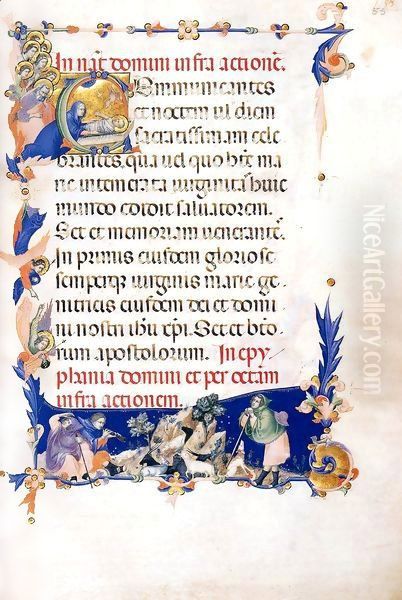 55
In nat̄ domini infra actionē.
Communicantes
et noctem uł diem
sacratissimam cele
brantes. qua uel quo btē ma
rie intemerata uirginitas huic
mundo edidit saluatorem.
Set et memoriam uenerantē.
In primis eiusdem gloriose
semperqꝫ uirginis marie ge
nitricis eiusdem dei et domi
ni nostri ihū xp̄i. Set et btō
rum apostolorum. In epy
phania domini et per octam
infra actionem.
NiceArtGallery.com